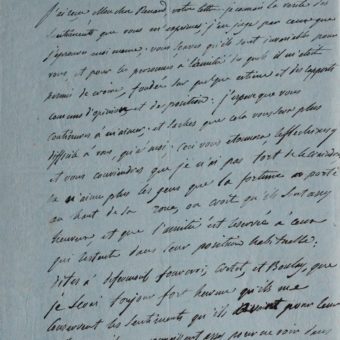 J'ai reçu Mon cher Renard, votre lettre. je connais la vérité des
sentiments que vous m'exprimez; j'en juge par ceux que
j'éprouve moi meme: vous savez qu'ils sont invariables pour
vous, et pour les personnes à l'amitié de qui il m'était
permis de croire, fondée sur quelque estime et des rapports
communs d'opinion et de position: j'espère que vous
continuerez à m'aimer; et sachez que cela vous sera plus
difficile à vous, qu'à moi: ceci vous étonnera, réfléchissez y
et vous conviendrez que je n'ai pas tort de le craindre
on n'aime plus les gens que la fortune a porté
au haut de sa roue, on croit qu'ils sont assez
heureux, et que l'amitié est réservée à ceux
qui restent dans leur position habituelle.
Dites à fourcroi, et Boulay, que
je serai toujours fort heureux qu'ils me
conservent les sentiments qu'ils avaient pour
pour me voir dans